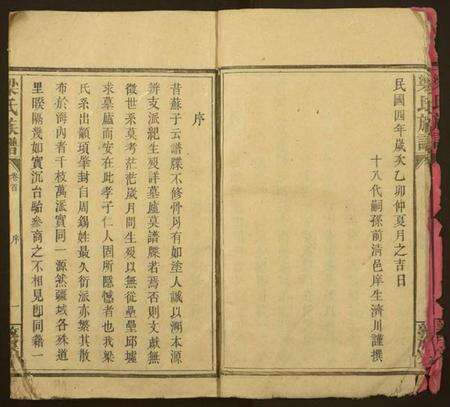 梁氏族譜
民國四年歲次乙卯仲夏月之吉日
十八代嗣孫前清邑庠生濟川謹撰
序
昔蘇子云譜牒不修骨肉有如塗人誠以溯本源
辨支派紀生歿詳墓廬莫譜牒若焉否則文獻無
徵世系莫考茫茫歲月問生歿以無從壘壘邱墟
求墓廬而安在此孝子仁人固所隱憾者也我梁
氏系出顓頊肇封自周錫姓最久衍派亦繁其散
布於海內者千枝萬派實同一源然疆域各殊道
里睽隔幾如實沉台駘參商之不相見卽同籍一
梁氏族譜
卷首
序
一